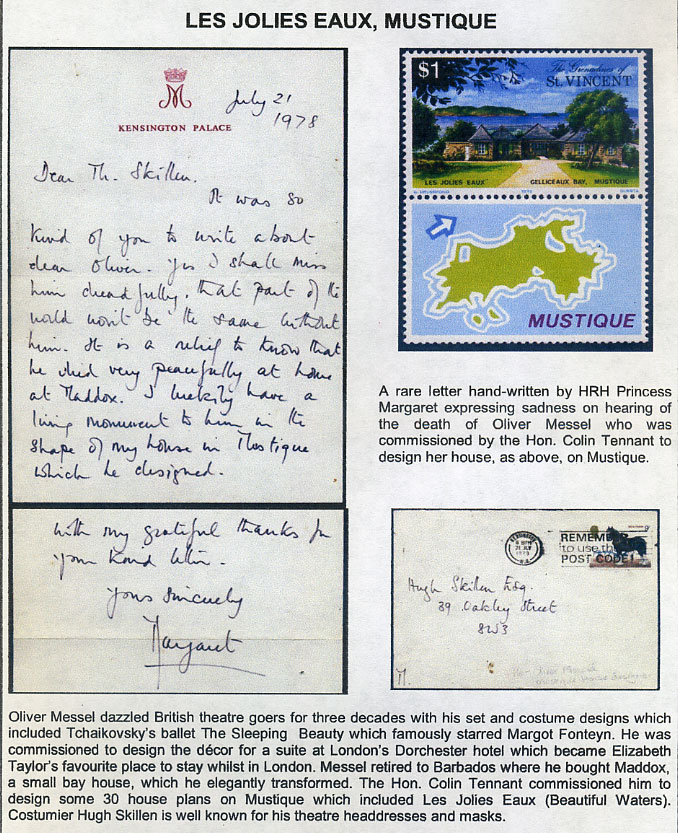 LES JOLIES EAUX, MUSTIQUE
M
KENSINGTON PALACE
July 21
1978
Dear Mr. Skillen.
It was so
kind of you to write about
dear Oliver. Yes I shall miss
him dreadfully, that part of the
world won't be the same without
him. It is a relief to know that
he died very peacefully at home
at Maddox. I luckily have a
living monument to him in the
shape of my house in Mustique
which he designed.
With my grateful thanks for
your kind letter.
Yours sincerely
Margaret
$1
The Grenadines of
ST. VINCENT
LES JOLIES EAUX
GELLICEAUX BAY, MUSTIQUE
MUSTIQUE
A rare letter hand-written by HRH Princess
Margaret expressing sadness on hearing of
the death of Oliver Messel who was
commissioned by the Hon. Colin Tennant to
design her house, as above, on Mustique.
REMEMBER
to use the
POST CODE!
Hugh Skillen Esq.
39 Oakley Street
SW3
M.
Oliver Messel dazzled British theatre goers for three decades with his set and costume designs which
included Tchaikovsky's ballet The Sleeping Beauty which famously starred Margot Fonteyn. He was
commissioned to design the décor for a suite at London's Dorchester hotel which became Elizabeth
Taylor's favourite place to stay whilst in London. Messel retired to Barbados where he bought Maddox,
a small bay house, which he elegantly transformed. The Hon. Colin Tennant commissioned him to
design some 30 house plans on Mustique which included Les Jolies Eaux (Beautiful Waters).
Costumier Hugh Skillen is well known for his theatre headdresses and masks.